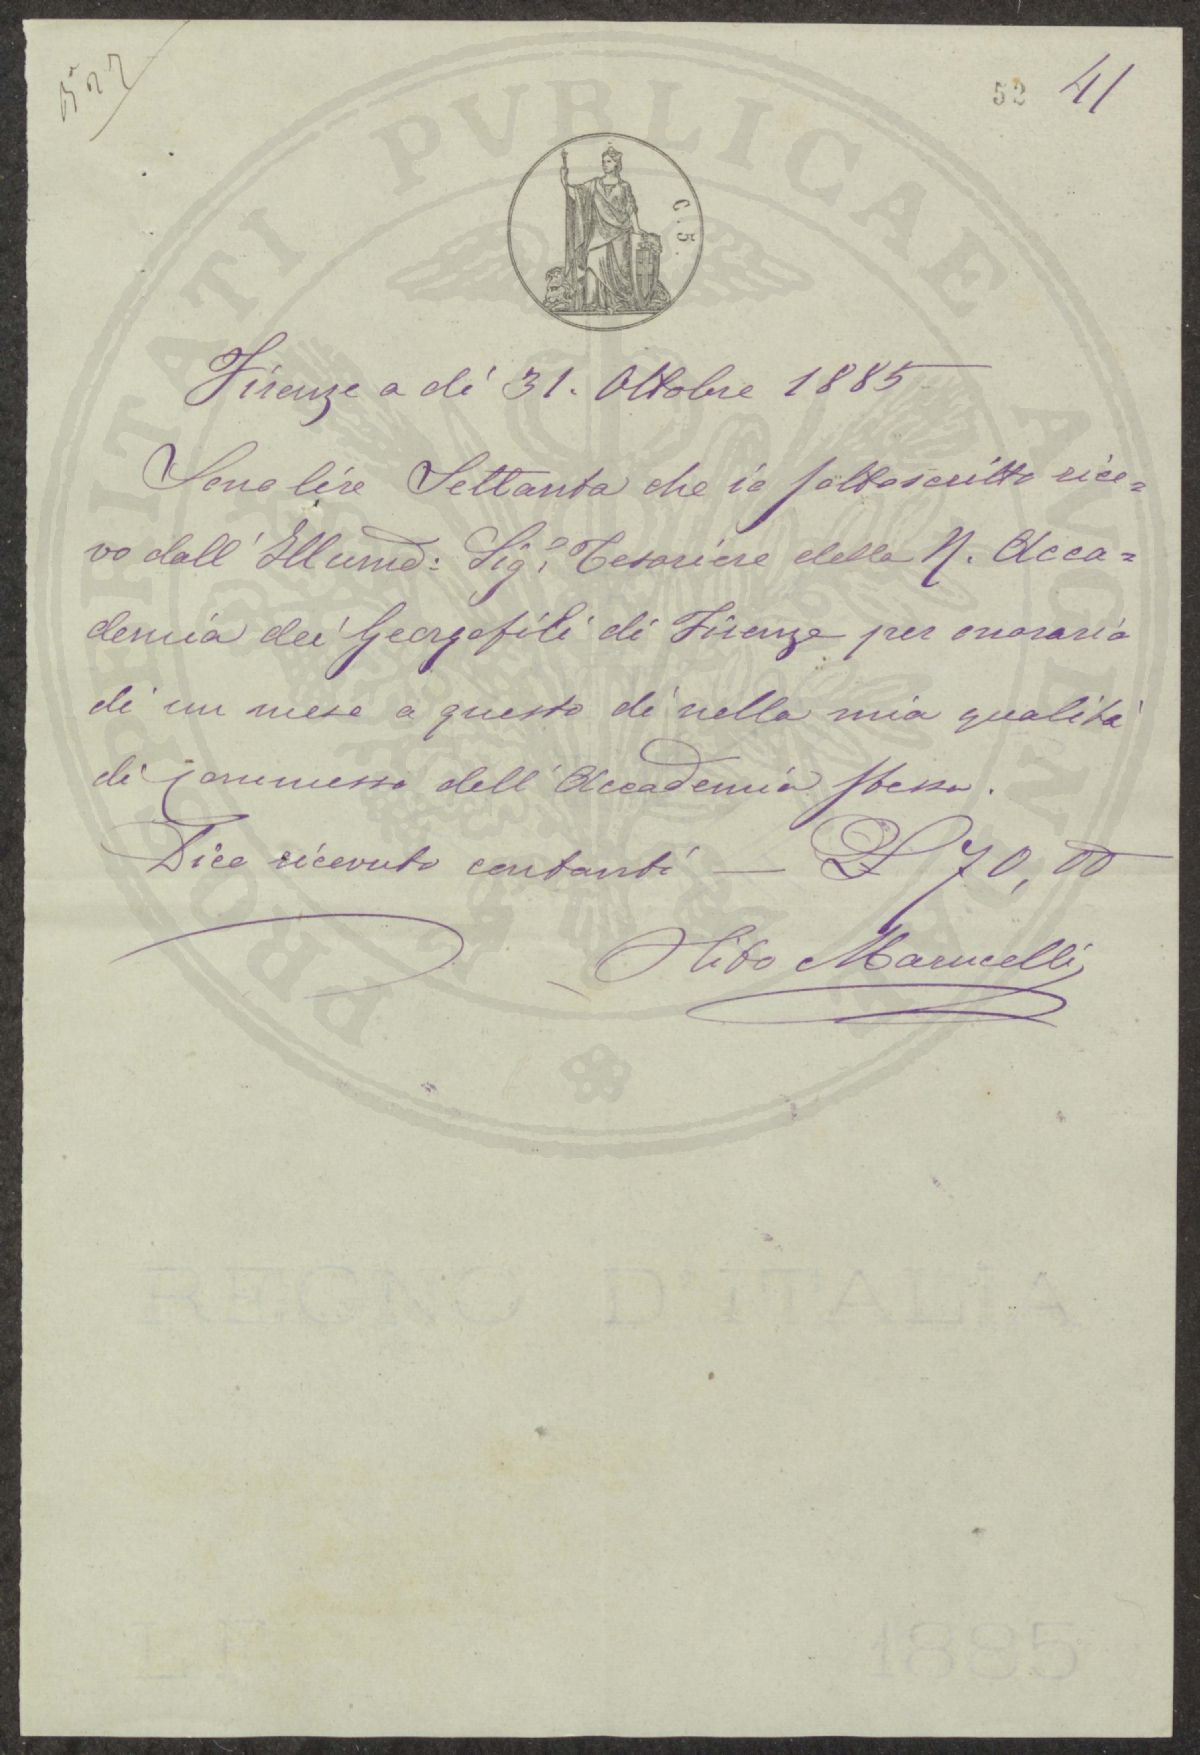 52 41
PROSPERITATI PVBLICAE AVGENDAE
C. 5.
Firenze a dì 31. Ottobre 1885
Sono lire Settanta che io sottoscritto rice=
vo dall' Illumo: Sigo. Tesoriere della R. Acca=
demia dei Georgofili di Firenze per onorario
di un mese a questo dì nella mia qualità
di Commesso dell' Accademia stessa.
Dico ricevuto contanti — £ 70,00
Marucelli
REGNO D'ITALIA
1885